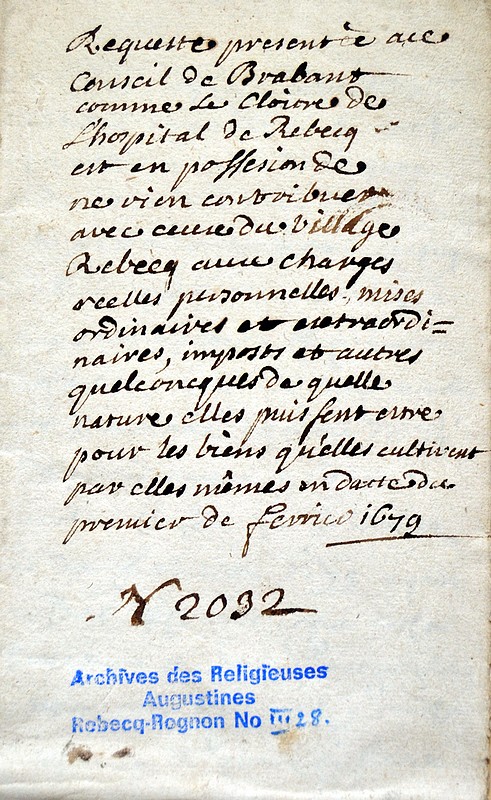 Requeste presentée aue
Conseil de Brabant
comme Le Cloitre de
L'hospital de Rebecq
est en possesion de
ne rien contribuer
avec ceux du village
Rebecq aux charges
reelles personnelles, mises
ordinaires et extraordi=
naires, imposts et autres
quelconcques de quelle
nature elles puissent estre
pour les biens qu'elles cultivent
par elles mêmes en datte du
premier de fevrier 1679
N 2032
Archives des Religieuses
Augustines
Rebecq-Rognon No III 28.